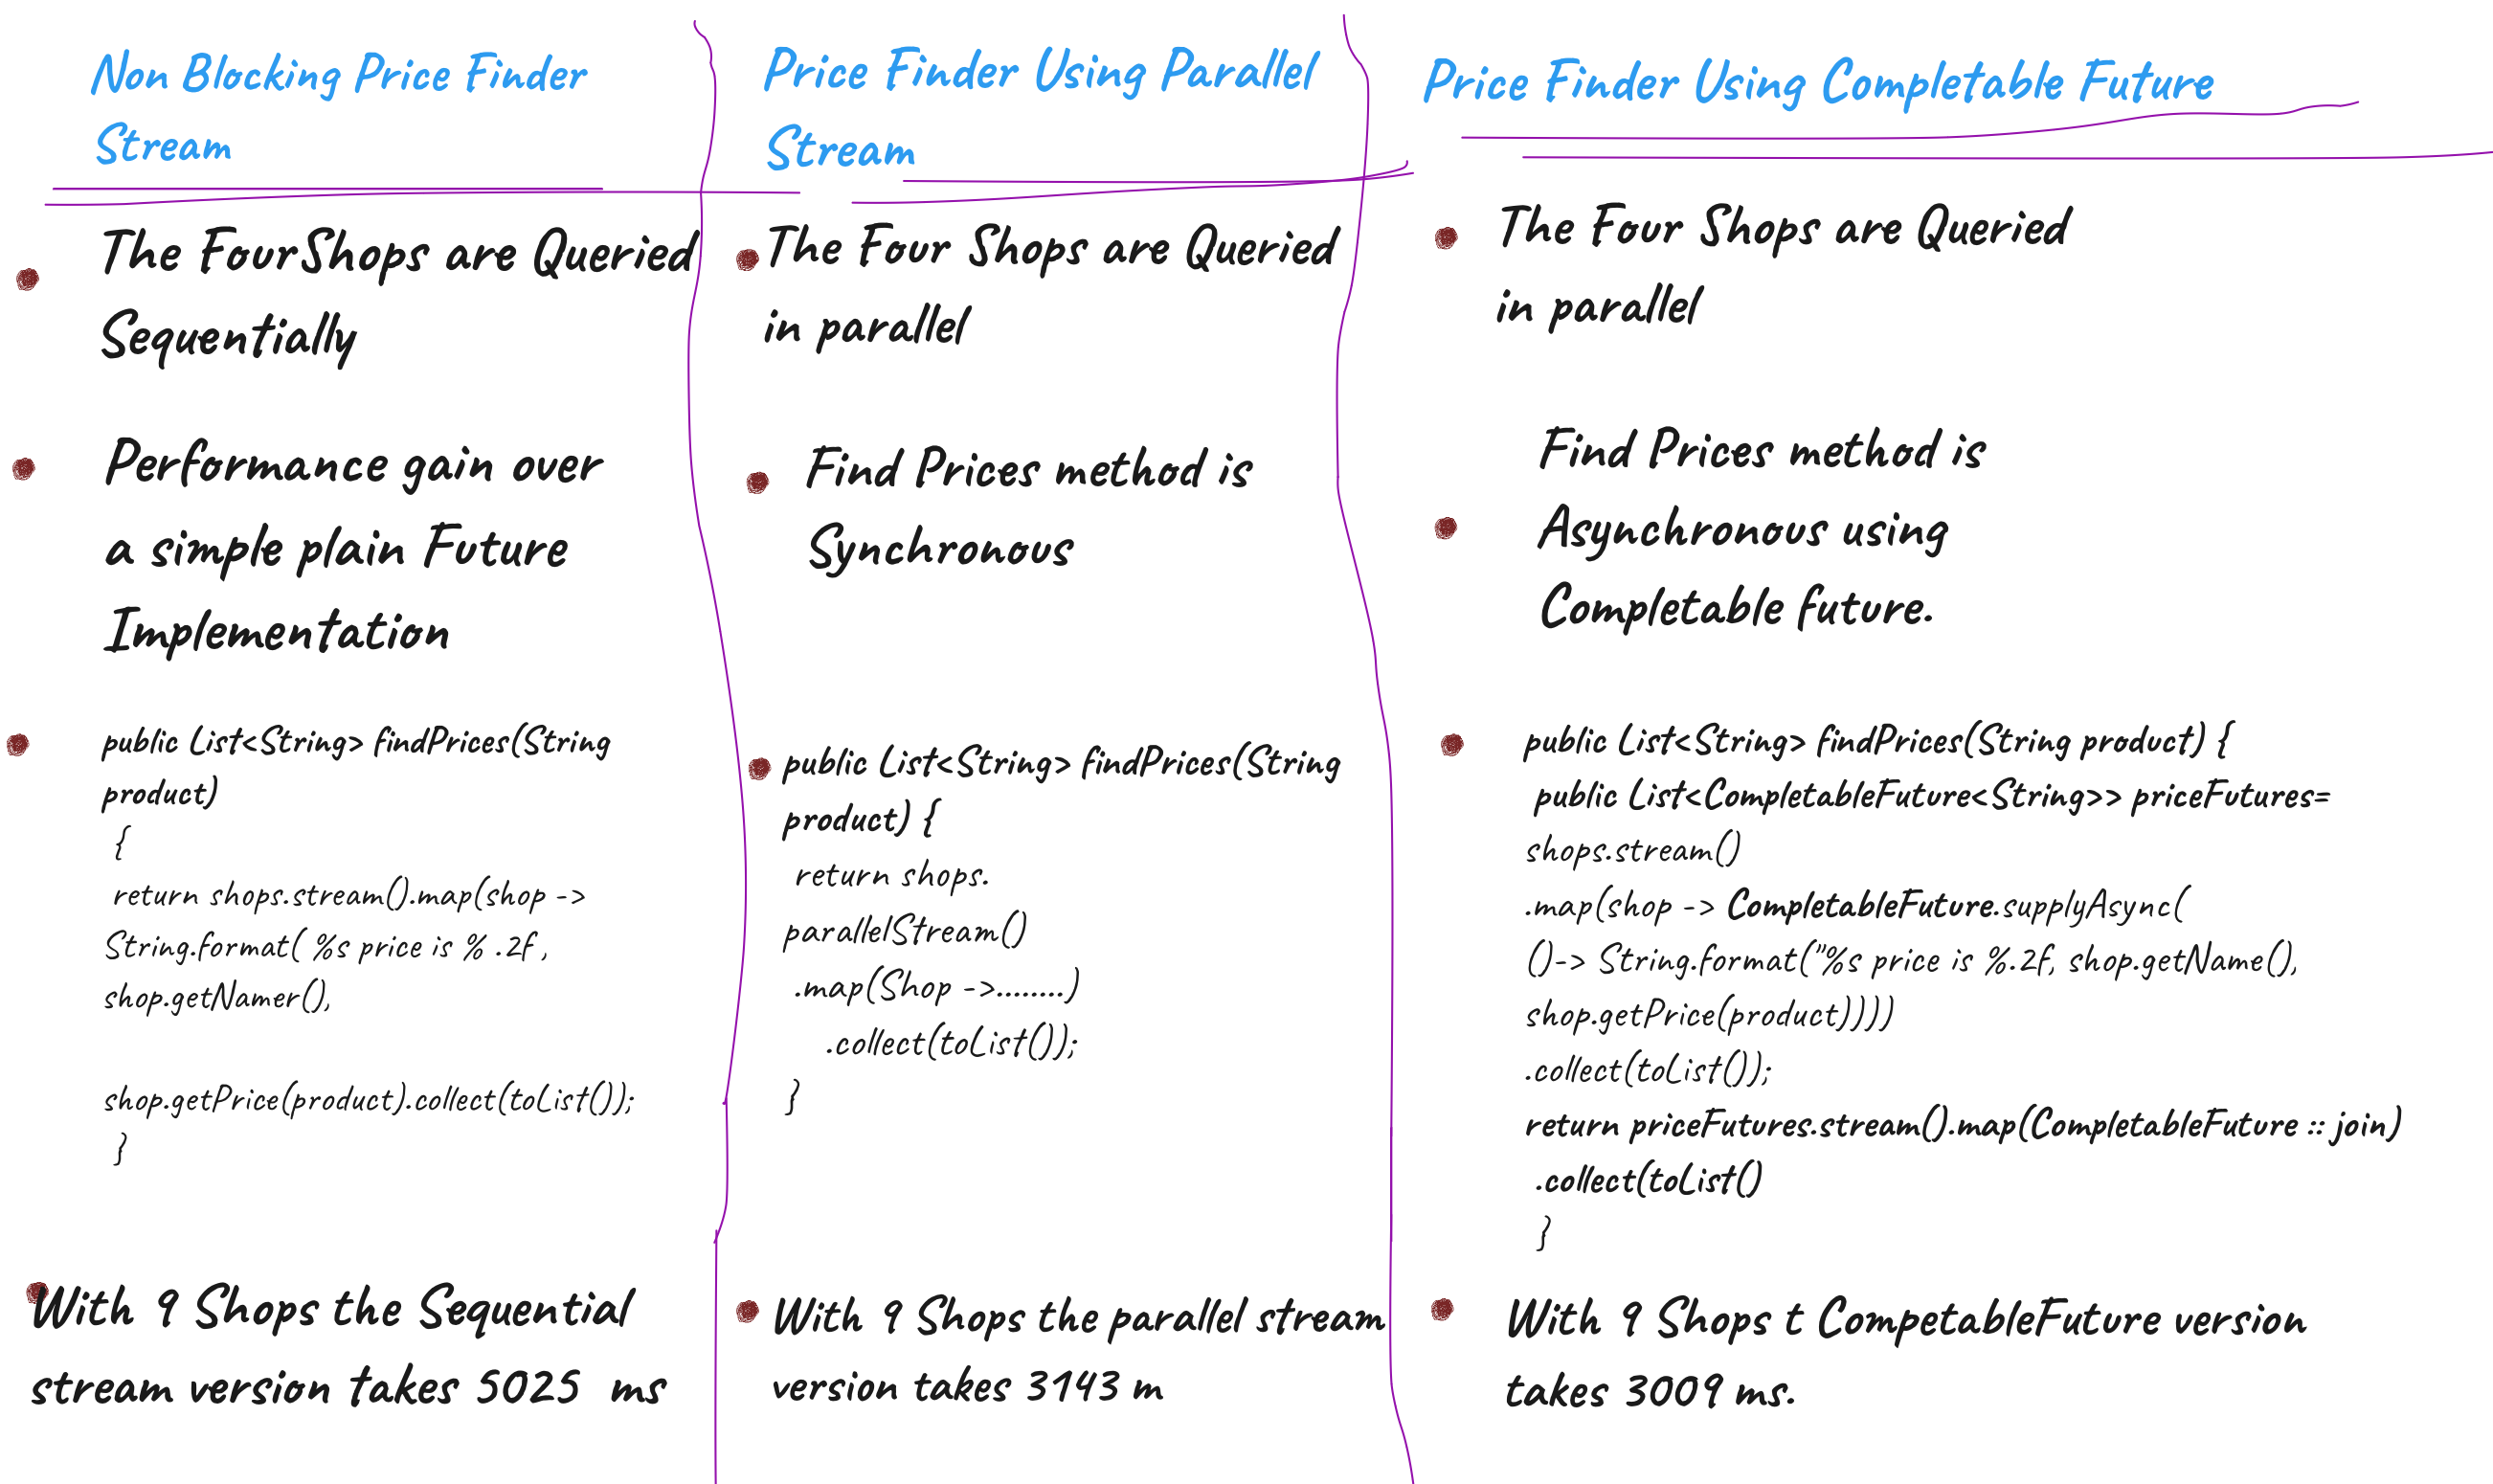 Non Blocking Price Finder
Stream
The FourShops are Queried
Sequentially
Performance gain over
a simple plain Future
Implementation
public List<String> findPrices(String
product)
{
return shops.stream().map(shop ->
String.format( %s price is % .2f ,
shop.getNamer(),
shop.getPrice(product).collect(toList());
}
With 9 Shops the Sequential
stream version takes 5025 ms
Price Finder Using Parallel
Stream
The Four Shops are Queried
in parallel
Find Prices method is
Synchronous
public List<String> findPrices(String
product) {
return shops.
parallelStream()
.map(Shop ->........)
.collect(toList());
}
With 9 Shops the parallel stream
version takes 3143 m
Price Finder Using Completable Future
The Four Shops are Queried
in parallel
Find Prices method is
Asynchronous using
Completable future.
public List<String> findPrices(String product) {
public List<CompletableFuture<String>> priceFutures=
shops.stream()
.map(shop -> CompletableFuture.supplyAsync(
()-> String.format("%s price is %.2f, shop.getName(),
shop.getPrice(product))))
.collect(toList());
return priceFutures.stream().map(CompletableFuture :: join)
.collect(toList()
}
With 9 Shops t CompetableFuture version
takes 3009 ms.